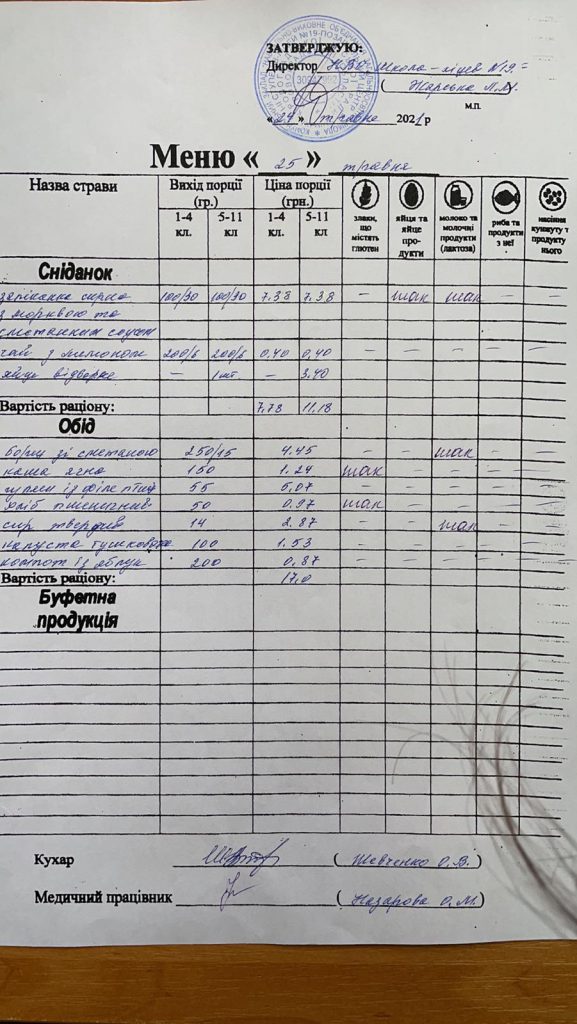 ЗАТВЕРДЖУЮ:
Директор НВК школа-ліцей №19
( Жарська Л.М.
м.п.
« 24 » травня 2021 р
Меню « 25 » травня
Назва страви Вихід порції (гр.) Ціна порції (грн.) злаки, що містять глютен яйця та яйце продукти молоко та молочні продукти (лактоза) риба та продукти з неї насіння кунжуту т продукту нього
1-4 кл. 5-11 кл 1-4 кл. 5-11 кл
Сніданок
запіканка сирна 100/30 100/30 7.38 7.38 – так так – –
з морквою та
сметанним соусом
чай з лимоном 200/6 200/6 0,40 0,40 – – – – –
яйце відварне – 1 шт. – 3.40
Вартість раціону: 7.78 11.18
Обід
борщ зі сметаною 250/15 4.45 – – так – –
каша ячна 150 1.24 так – – – –
із філе птиці 55 5,07 – – – – –
хліб пшеничний 50 0.97 так – – – –
сир твердий 14 2.87 – – так – –
капуста тушкована 100 1.53 – – – – –
компот із яблук 200 0,87 – – – – –
Вартість раціону: 17,0
Буфетна
продукція
Кухар ( Шевченко О.В. )
Медичний працівник ( Назарова О.М. )